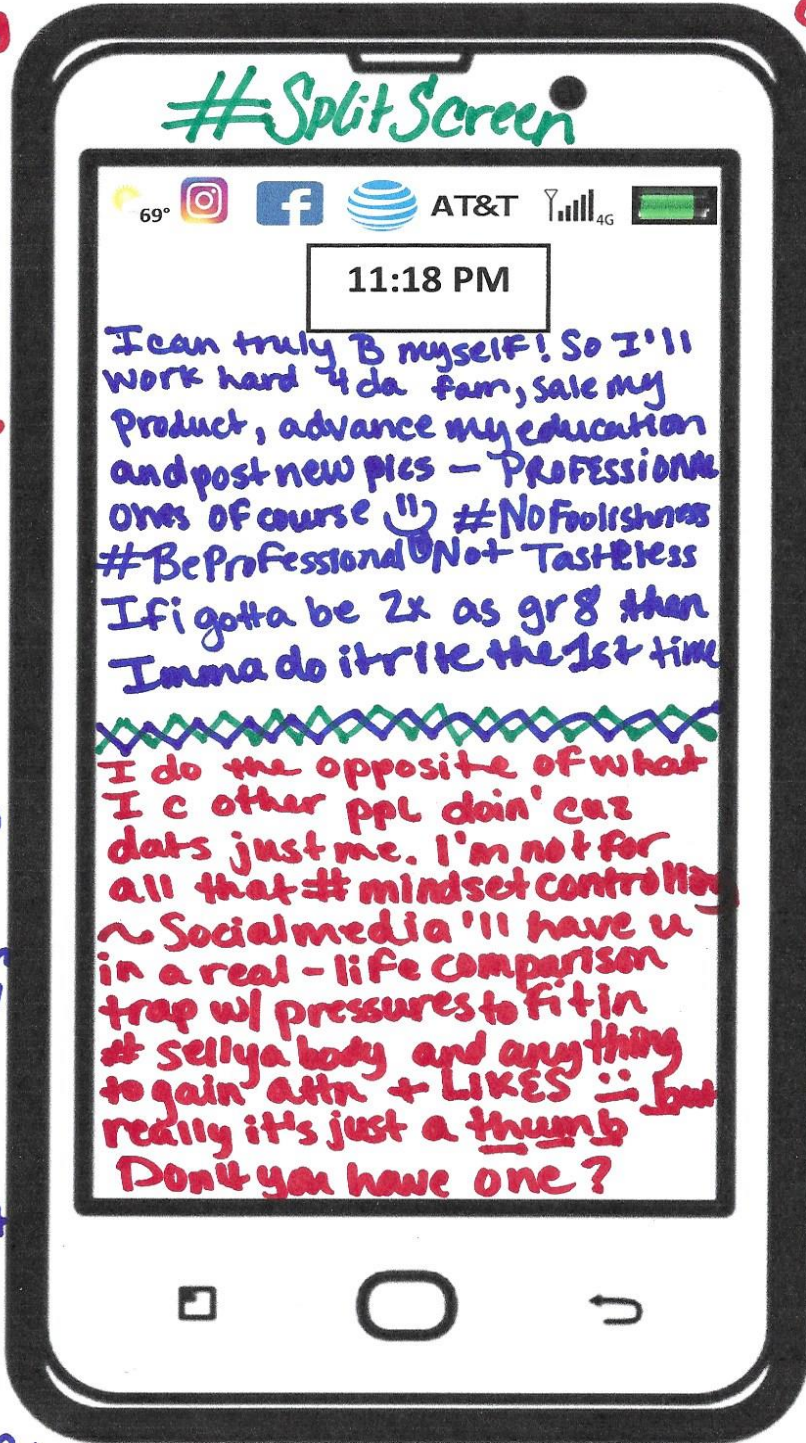 #SplitScreen
69° f AT&T 4G
11:18 PM
I can truly B myself! So I'll
work hard 4 da fam, sale my
Product, advance my education
and post new pics – PROFESSIONAL
ones of course #NoFoolishness
#BeProfessional Not Tasteless
If i gotta be 2x as gr8 then
Imma do it rite the 1st time
I do the opposite of what
I c other ppl doin' cuz
dats just me. I'm not for
all that # mindset controlling
~ Socialmedia'll have u
in a real-life comparison
trap w/ pressures to fit in
# sellya body and anything
to gain attn + LIKES but
really it's just a thumb
Don't you have one?